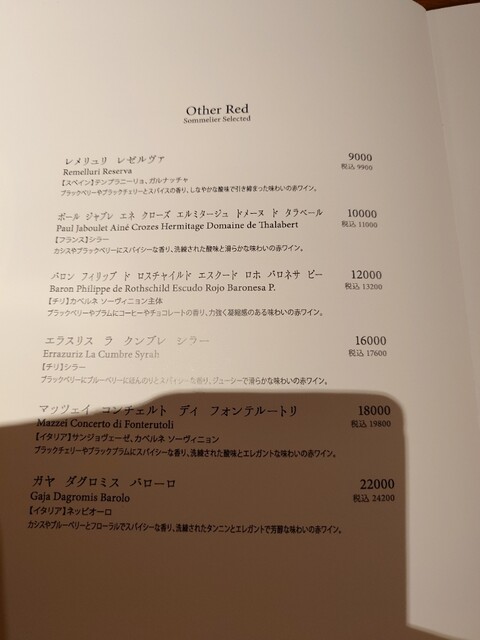 Other Red
Sommelier Selected
レメリュリ レゼルヴァ 9000
Remelluri Reserva 税込 9900
【スペイン】テンプラニーリョ、ガルナッチャ
ブラックベリーやブラックチェリーとスパイスの香り、しなやかな酸味で引き締まった味わいの赤ワイン。
ポール ジャブレ エネ クローズ エルミタージュ ドメーヌ ド タラベール 10000
Paul Jaboulet Ainé Crozes Hermitage Domaine de Thalabert 税込 11000
【フランス】シラー
カシスやブラックベリーにスパイシーな香り、洗練された酸味と滑らかな味わいの赤ワイン。
バロン フィリップ ド ロスチャイルド エスクード ロホ バロネサ ピー 12000
Baron Philippe de Rothschild Escudo Rojo Baronesa P. 税込 13200
【チリ】カベルネ ソーヴィニョン主体
ブラックベリーやプラムにコーヒーやチョコレートの香り、力強く凝縮感のある味わいの赤ワイン。
エラスリス ラ クンブレ シラー 16000
Errazuriz La Cumbre Syrah 税込 17600
【チリ】シラー
ブラックベリーにブルーベリーにほんのりとスパイシーな香り、ジューシーで滑らかな味わいの赤ワイン。
マッツェイ コンチェルト ディ フォンテルートリ 18000
Mazzei Concerto di Fonterutoli 税込 19800
【イタリア】サンジョヴェーゼ、カベルネ ソーヴィニョン
ブラックチェリーやブラックプラムにスパイシーな香り、洗練された酸味とエレガントな味わいの赤ワイン。
ガヤ ダグロミス バローロ 22000
Gaja Dagromis Barolo 税込 24200
【イタリア】ネッビオーロ
カシスやブルーベリーとフローラルでスパイシーな香り、洗練されたタンニンとエレガントで芳醇な味わいの赤ワイン。